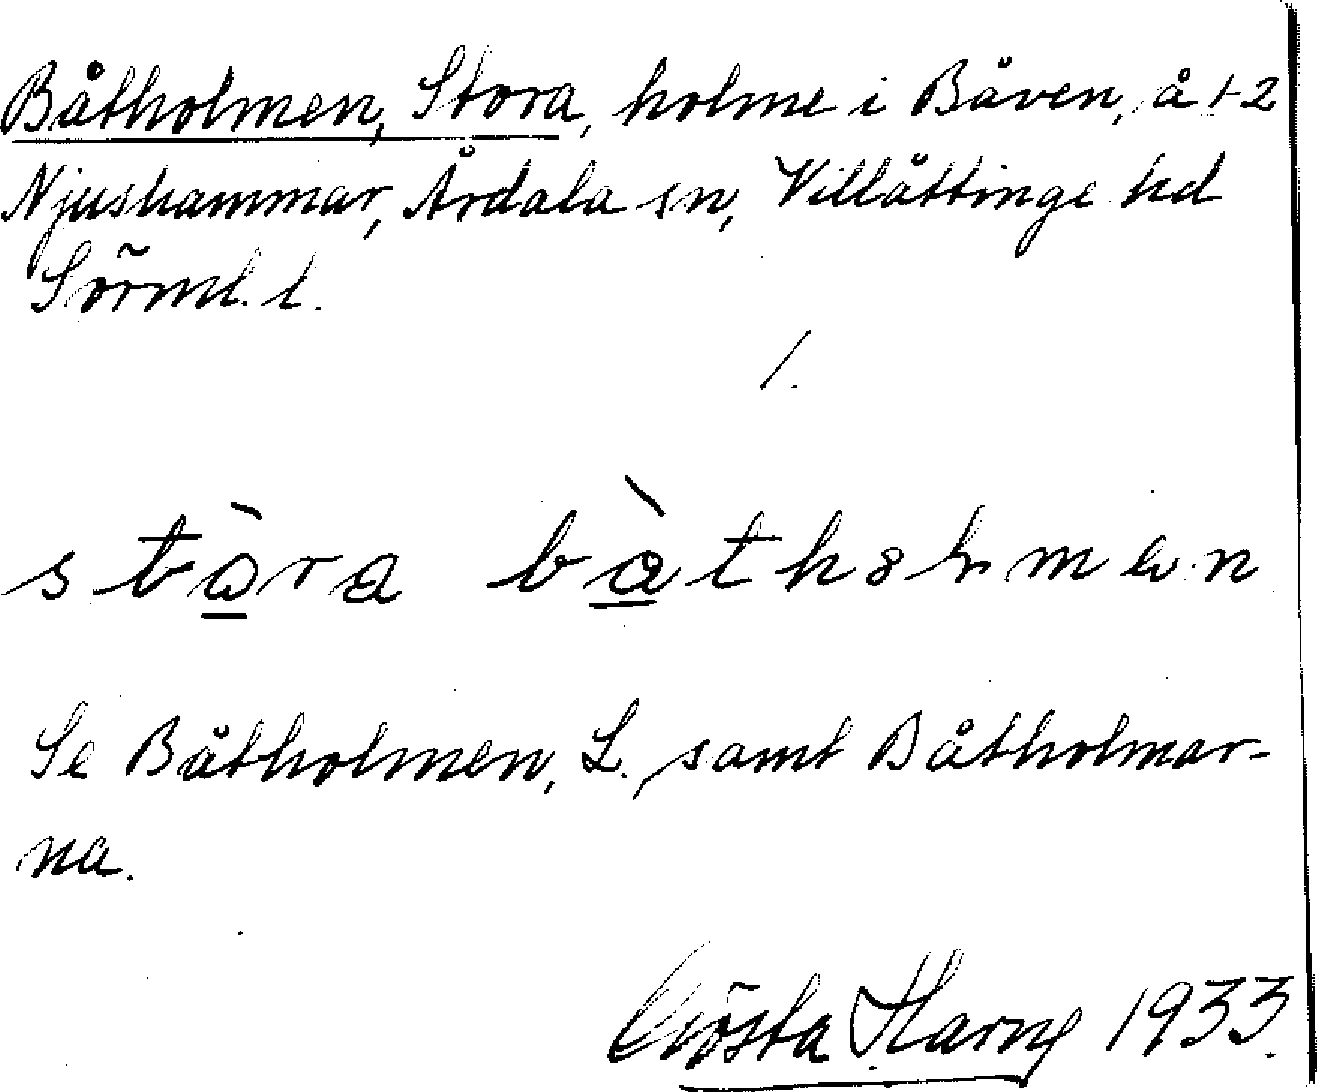 Båtholmen, Stora, holme i Båven, å 1-2
Njushammar, Årdala sn, Villåttinge hd
Sörml. l.
1.
stòra bàtholmen
Se Båtholmen, L., samt Båtholmar-
na.
Gösta 1933.